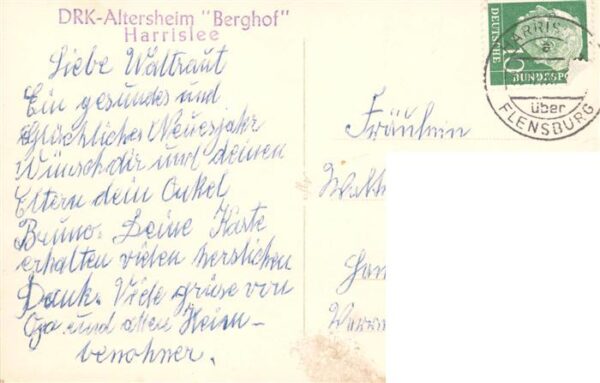 DRK-Altersheim "Berghof"
Harrislee
Liebe Waltraut
Ein gesundes und
Glückliches Neuesjahr
Wünsch dir und deinen
Eltern dein Onkel
Bruno. Deine Karte
erhalten vielen herslichen
Dank. Viele grüse von
Opa und allen Heim-
benohner.
DEUTSCHE
BUNDESPO
10
HARRIS
über
FLENSBURG
Fräulein
Walt